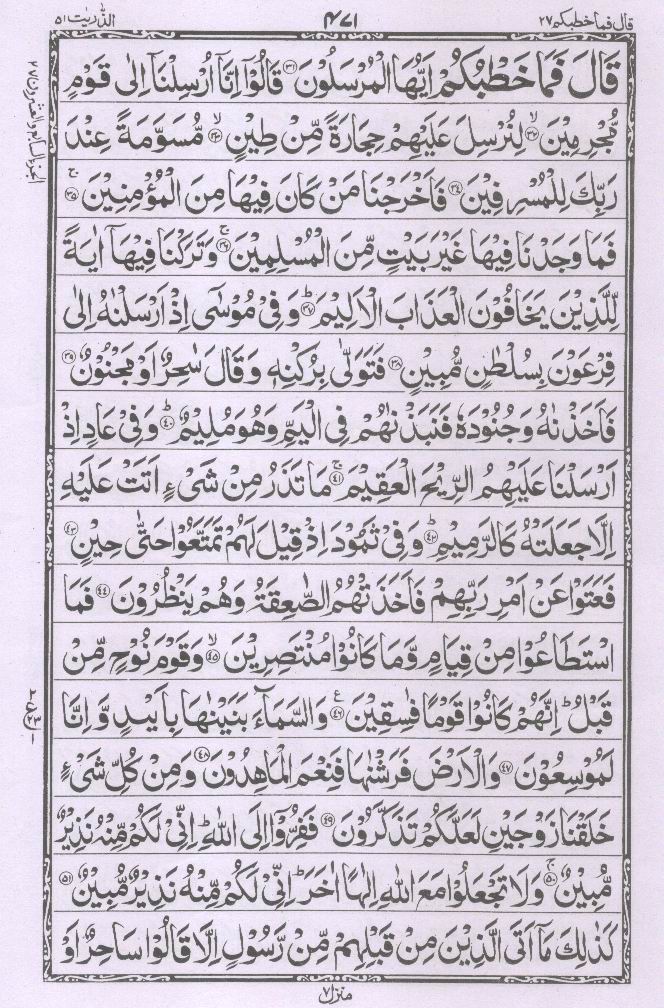 قال فما خطبكم ٢٧
٤٧١
الذّٰريٰت ٥١
قَالَ فَمَا خَطْبُكُمْ اَيُّهَا الْمُرْسَلُوْنَ ﴿٣١﴾ قَالُوْۤا اِنَّاۤ اُرْسِلْنَاۤ اِلٰى قَوْمٍ
مُّجْرِمِيْنَ ۙ﴿٣٢﴾ لِنُرْسِلَ عَلَيْهِمْ حِجَارَةً مِّنْ طِيْنٍ ۙ﴿٣٣﴾ مُّسَوَّمَةً عِنْدَ
رَبِّكَ لِلْمُسْرِفِيْنَ ﴿٣٤﴾ فَاَخْرَجْنَا مَنْ كَانَ فِيْهَا مِنَ الْمُؤْمِنِيْنَ ۚ﴿٣٥﴾
فَمَا وَجَدْنَا فِيْهَا غَيْرَ بَيْتٍ مِّنَ الْمُسْلِمِيْنَ ۚ﴿٣٦﴾ وَتَرَكْنَا فِيْهَاۤ اٰيَةً
لِّلَّذِيْنَ يَخَافُوْنَ الْعَذَابَ الْاَلِيْمَ ؕ﴿٣٧﴾ وَفِيْ مُوْسٰۤى اِذْ اَرْسَلْنٰهُ اِلٰى
فِرْعَوْنَ بِسُلْطٰنٍ مُّبِيْنٍ ﴿٣٨﴾ فَتَوَلّٰى بِرُكْنِهٖ وَقَالَ سٰحِرٌ اَوْ مَجْنُوْنٌ ﴿٣٩﴾
فَاَخَذْنٰهُ وَجُنُوْدَهٗ فَنَبَذْنٰهُمْ فِي الْيَمِّ وَهُوَ مُلِيْمٌ ؕ﴿٤٠﴾ وَفِيْ عَادٍ اِذْ
اَرْسَلْنَا عَلَيْهِمُ الرِّيْحَ الْعَقِيْمَ ۚ﴿٤١﴾ مَا تَذَرُ مِنْ شَيْءٍ اَتَتْ عَلَيْهِ
اِلَّا جَعَلَتْهُ كَالرَّمِيْمِ ؕ﴿٤٢﴾ وَفِيْ ثَمُوْدَ اِذْ قِيْلَ لَهُمْ تَمَتَّعُوْا حَتّٰى حِيْنٍ ﴿٤٣﴾
فَعَتَوْا عَنْ اَمْرِ رَبِّهِمْ فَاَخَذَتْهُمُ الصّٰعِقَةُ وَهُمْ يَنْظُرُوْنَ ﴿٤٤﴾ فَمَا
اسْتَطَاعُوْا مِنْ قِيَامٍ وَّمَا كَانُوْا مُنْتَصِرِيْنَ ۙ﴿٤٥﴾ وَقَوْمَ نُوْحٍ مِّنْ
قَبْلُ ؕ اِنَّهُمْ كَانُوْا قَوْمًا فٰسِقِيْنَ ﴿٤٦﴾ وَالسَّمَآءَ بَنَيْنٰهَا بِاَيْىدٍ وَّاِنَّا
لَمُوْسِعُوْنَ ﴿٤٧﴾ وَالْاَرْضَ فَرَشْنٰهَا فَنِعْمَ الْمَاهِدُوْنَ ﴿٤٨﴾ وَمِنْ كُلِّ شَيْءٍ
خَلَقْنَا زَوْجَيْنِ لَعَلَّكُمْ تَذَكَّرُوْنَ ﴿٤٩﴾ فَفِرُّوْۤا اِلَى اللّٰهِ ؕ اِنِّيْ لَكُمْ مِّنْهُ نَذِيْرٌ
مُّبِيْنٌ ۚ﴿٥٠﴾ وَلَا تَجْعَلُوْا مَعَ اللّٰهِ اِلٰهًا اٰخَرَ ؕ اِنِّيْ لَكُمْ مِّنْهُ نَذِيْرٌ مُّبِيْنٌ ﴿٥١﴾
كَذٰلِكَ مَاۤ اَتَى الَّذِيْنَ مِنْ قَبْلِهِمْ مِّنْ رَّسُوْلٍ اِلَّا قَالُوْا سَاحِرٌ اَوْ
منزل ٧
الجزء السابع والعشرون ٢٧